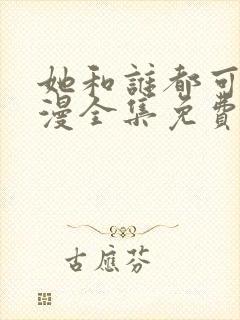 她和誰都可
漫全集免費
古應芬